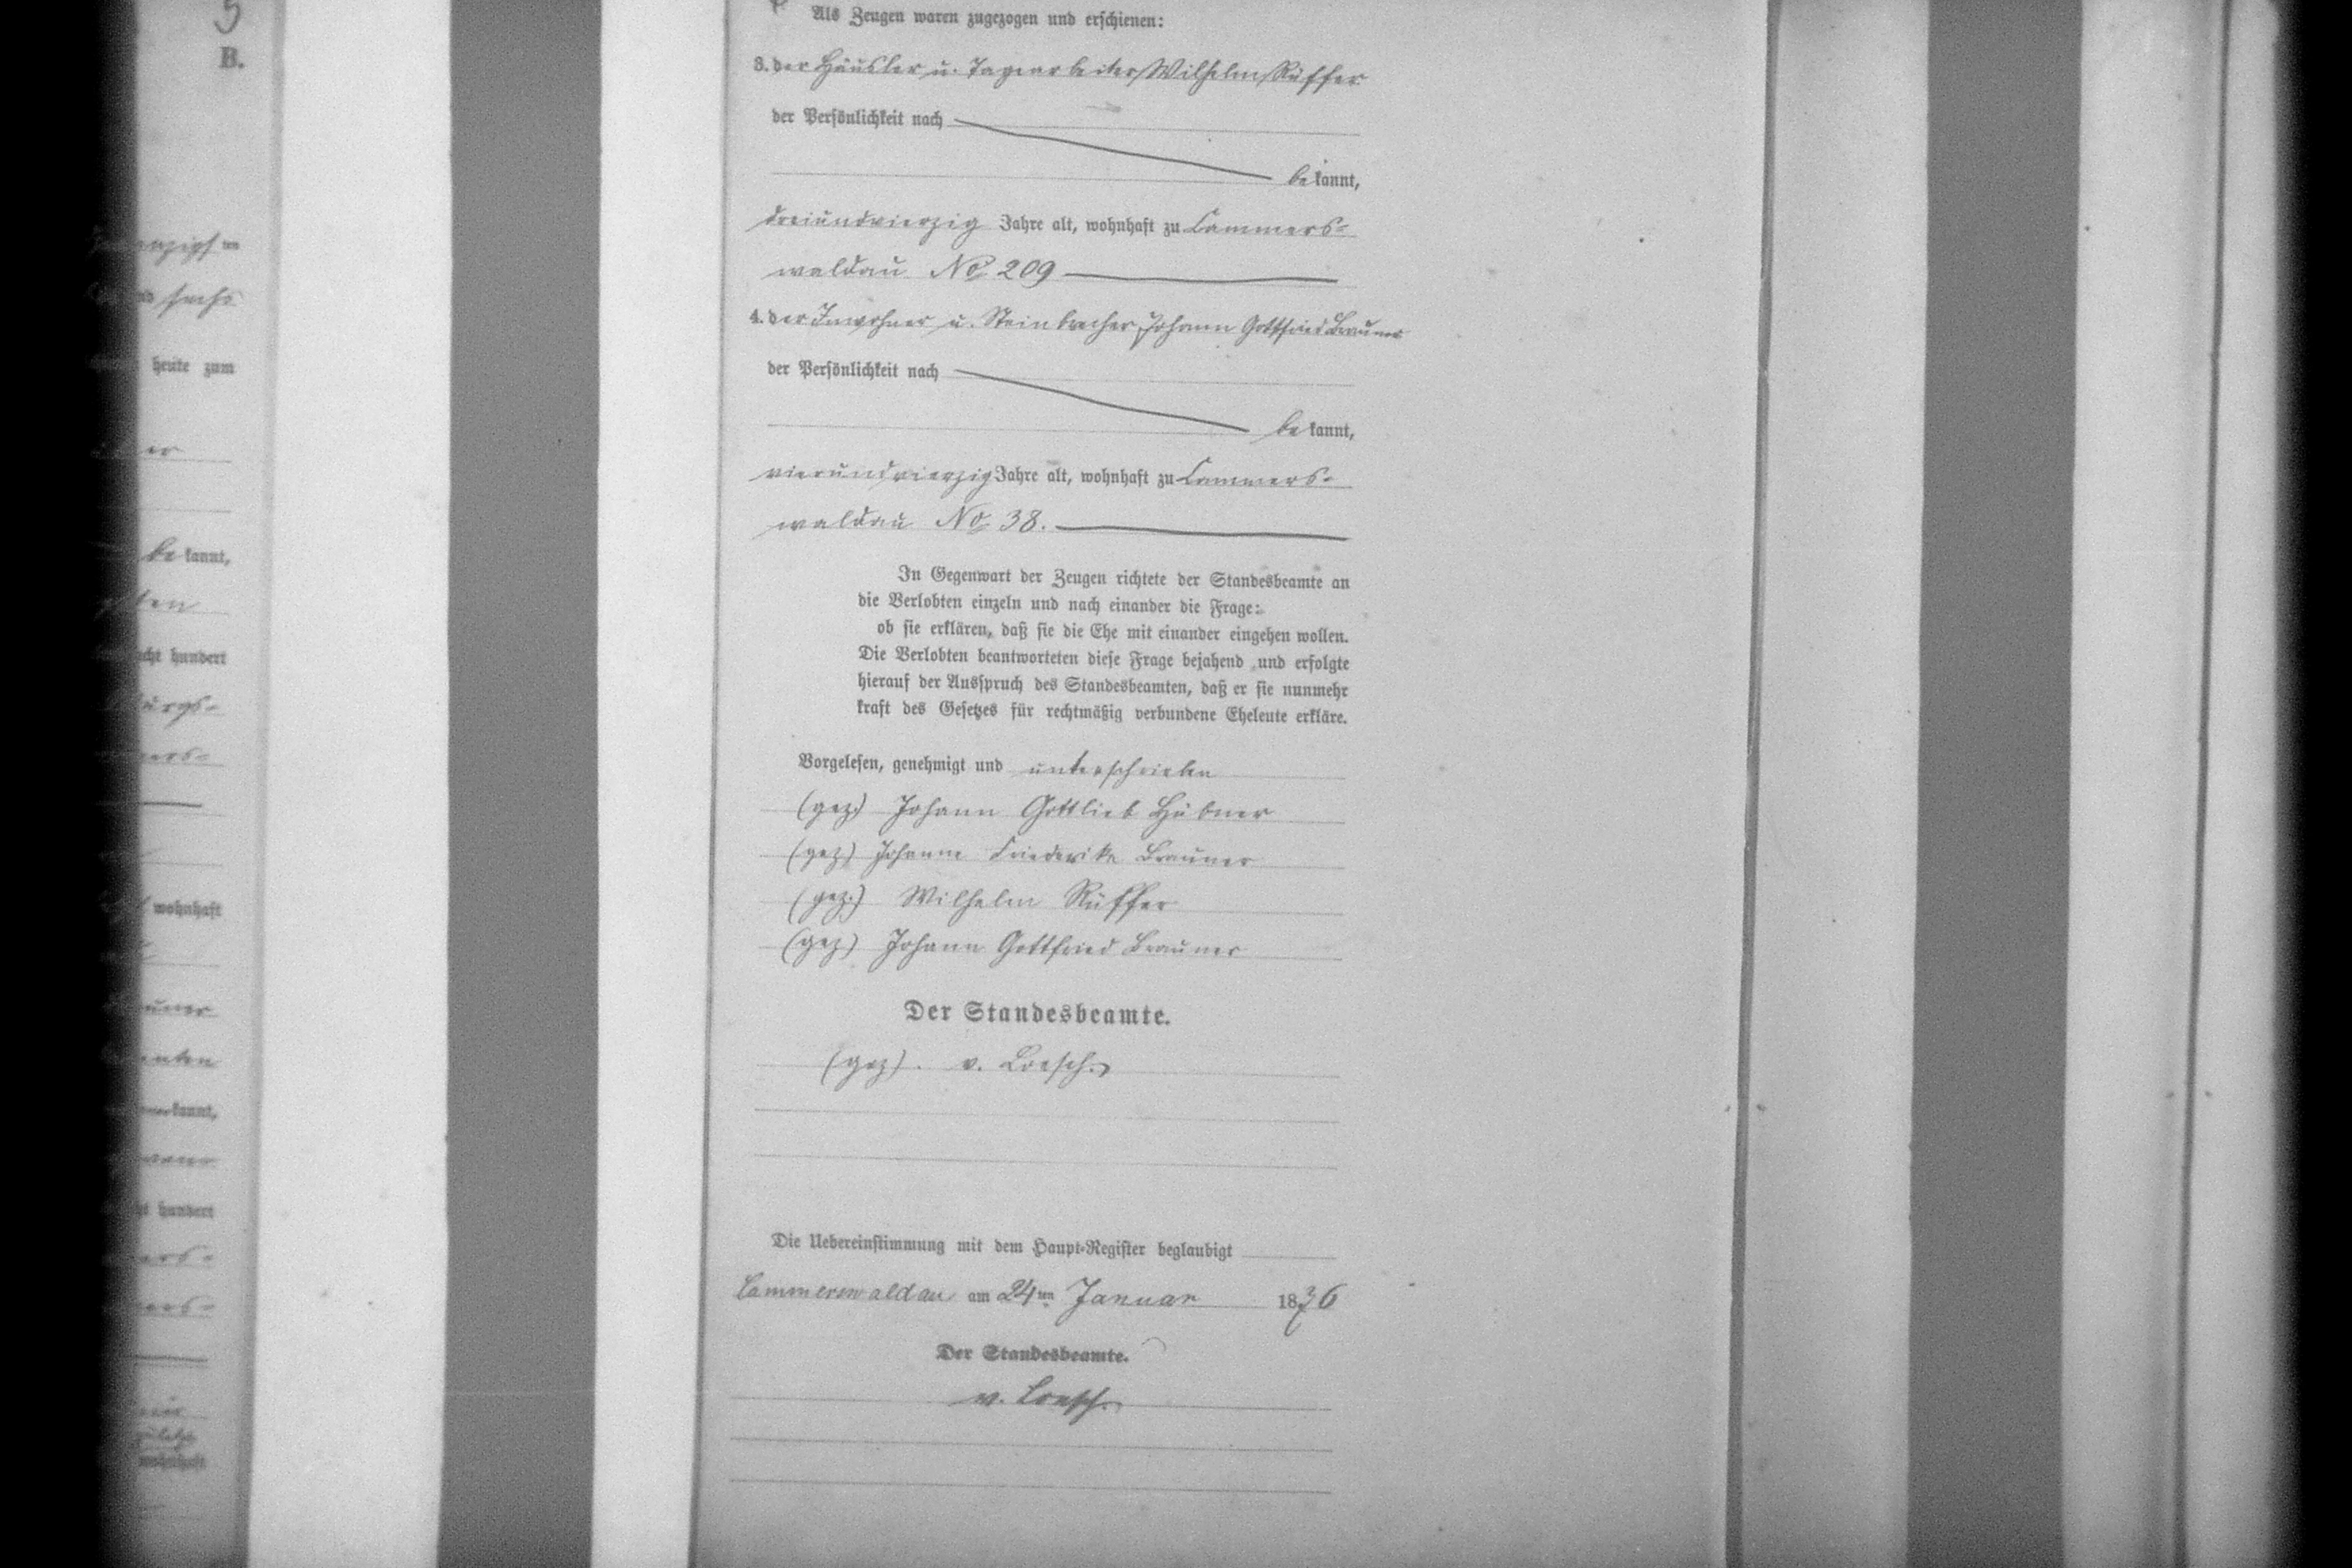 5
B.
heute zum
be kannt,
wohnhaft
Als Zeugen waren zugezogen und erschienen:
3. der Häusler u. Tagearbeiter Wilhelm Rüffer
der Persönlichkeit nach
be kannt,
dreiundvierzig Jahre alt, wohnhaft zu Cammers-
waldau No 209
4. der Inwohner u. Steinbrecher Johann Gottfried Brauner
der Persönlichkeit nach
be kannt,
vierundvierzig Jahre alt, wohnhaft zu Cammers-
waldau No 38.
In Gegenwart der Zeugen richtete der Standesbeamte an
die Verlobten einzeln und nach einander die Frage:
ob sie erklären, daß sie die Ehe mit einander eingehen wollen.
Die Verlobten beantworteten diese Frage bejahend und erfolgte
hierauf der Ausspruch des Standesbeamten, daß er sie nunmehr
kraft des Gesetzes für rechtmäßig verbundene Eheleute erkläre.
Vorgelesen, genehmigt und unterschrieben
(gez.) Johann Gottlieb Hübner
(gez) Johanne Friederike Brauner
(gez.) Wilhelm Rüffer
(gez) Johann Gottfried Brauner
Der Standesbeamte.
(gez). v. Loesch.
Die Uebereinstimmung mit dem Haupt-Register beglaubigt
Cammerswaldau am 24ten Januar 1876
Der Standesbeamte.
v. Loesch.